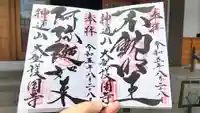 奉拝
令和五年八月六日
不動明王
神道山
大聖護国寺
奉拝
令和五年八月六日
阿弥陀如来
神道山
大聖護国寺